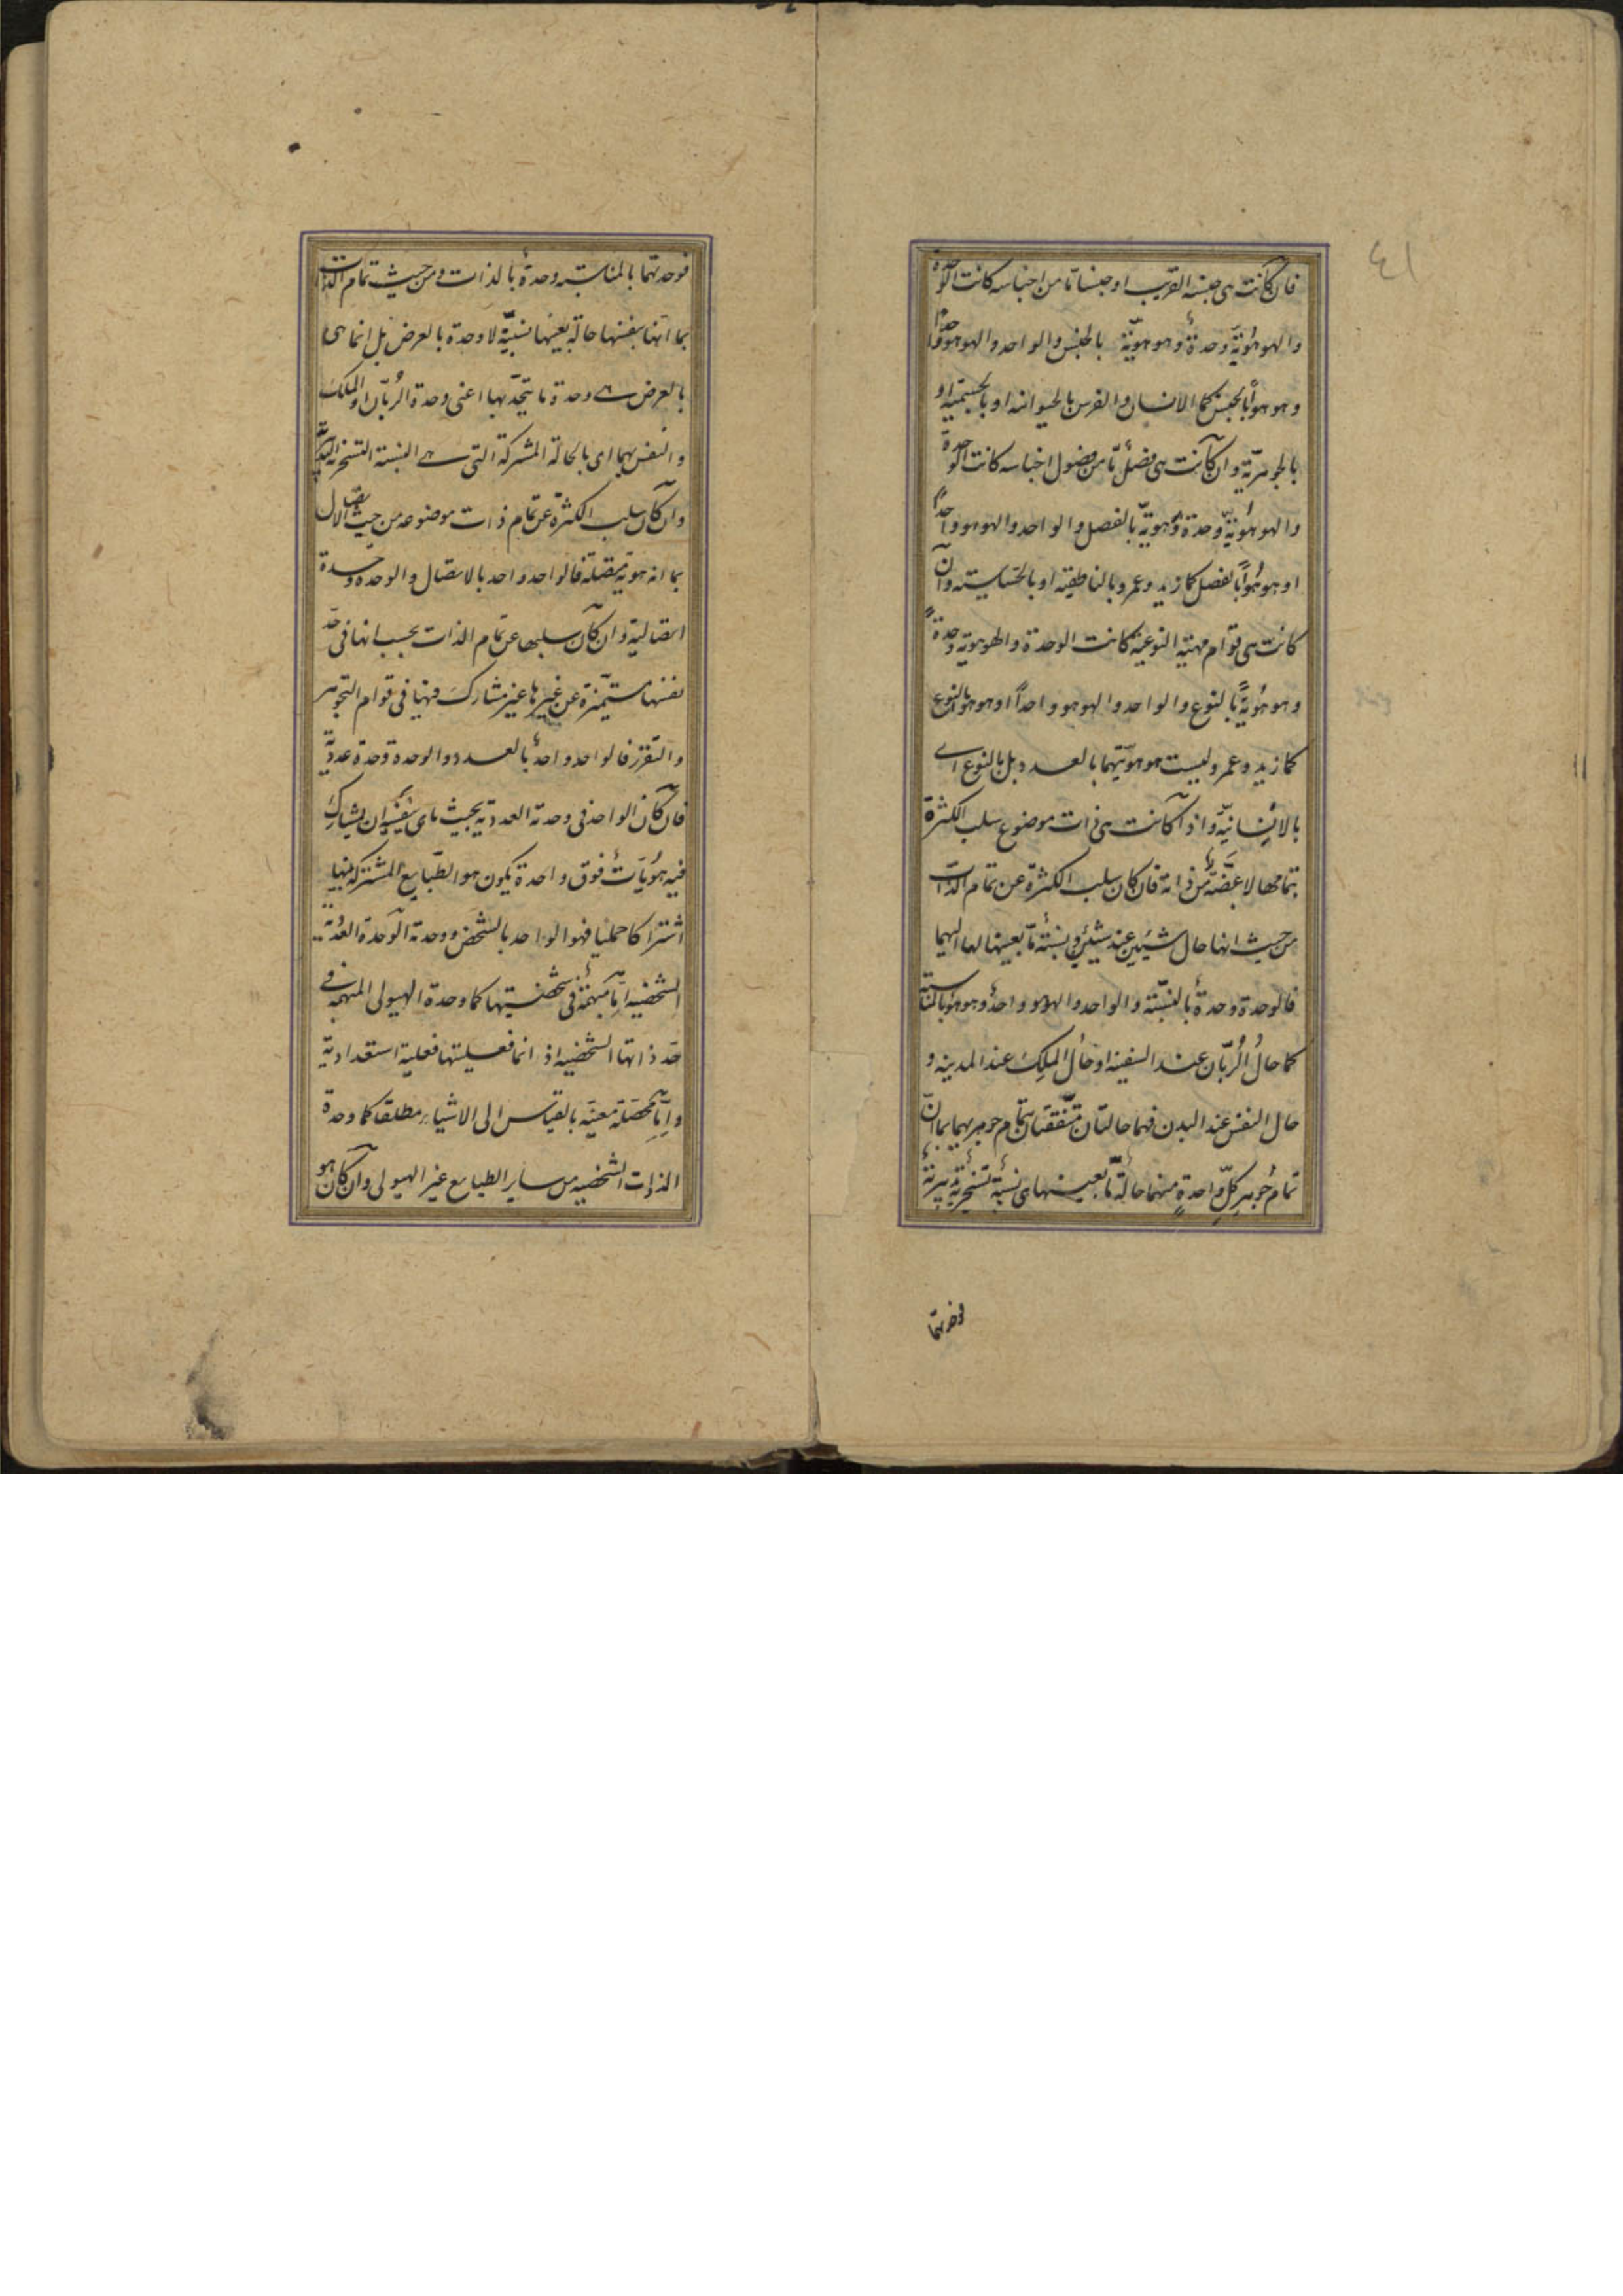 ٤١
فان كانت هى جنسه القريب او جنسا ما من اجناسه كانت الوحدة
والهوهوية وحدة وهوهوية بالجنس والواحد والهوهو واحدا
وهوهو بالجنس كما الانسان والفرس بالحيوانيه او بالجسميه او
بالجوهرية وان كانت هى فصل ما من فصول اجناسه كانت الوحدة
والهوهوية وحدة وهوهوية بالفصل والواحد والهوهو واحدا
او هوهوا بالفصل كما زيد وعمرو بالناطقيه او بالحساسيه وان
كانت هى قوام مهيته النوعية كانت الوحدة والهوهوية وحدة
وهوهوية بالنوع والواحد والهوهو واحدا او هوهو بالنوع
كما زيد وعمرو ليست هوهويتهما بالعدد بل بالنوع اى
بالانسانية واذا كانت هى ذات موضوع سلب الكثرة
بتمامها لا بعضة من ذاته فان كان سلب الكثرة عن تمام الذات
من حيث انها حال شيئين عند شيئين ونسبة ما بعينها لها اليهما
فالوحدة وحدة بالنسبة والواحد والهوهو واحد وهوهو بالمناسبة
كما حال الربان عند السفينه او حال الملك عند المدينه و
حال النفس عند البدن فهما حالتان متفقتان بتمام جوهريهما بما ان
تمام جوهر كل واحدة منهما حالة ما بعينها هى نسبة تسخيرية تدبيرية
فوحدتهما
فوحدتهما بالمناسبة وحدة بالذات ومن حيث تمام الذات
بما انها بنفسها حالة بعينها نسبية لا وحدة بالعرض بل انما هى
بالعرض هى وحدة ما يتحد بها اعنى وحدة الربان او الملك
والنفس بهما اى بالحالة المشتركة التى هى النسبة التسخيرية التدبيرية
وان كان سلب الكثرة عن تمام ذات موضوعه من حيث الاتصال
بما انه هوية متصلة فالواحد واحد بالاتصال والوحدة وحدة
اتصالية وان كان سلبها عن تمام الذات بحسب انها فى حد
نفسها متميزة عن غيرها غير مشارك فيها فى قوام التجوهر
والتقرر فالواحد واحد بالعدد والوحدة وحدة عددية
فان كان الواحد فى وحدته العددية بحيث يابى بنفسه ان يشارك
فيه هويات فوق واحدة يكون هو الطبايع المشتركة فيها
اشتراكا حمليا فهو الواحد بالشخص ووحدته الوحدة العددية
الشخصيه اما مبهمة فى شخصيتها كما وحدة الهيولى المبهمه فى
حد ذاتها الشخصيه اذ انما فعليتها فعلية استعدادية
واما محصلة معينة بالقياس الى الاشياء مطلقا كما وحدة
الذوات الشخصيه من ساير الطبايع غير الهيولى وان كان هو